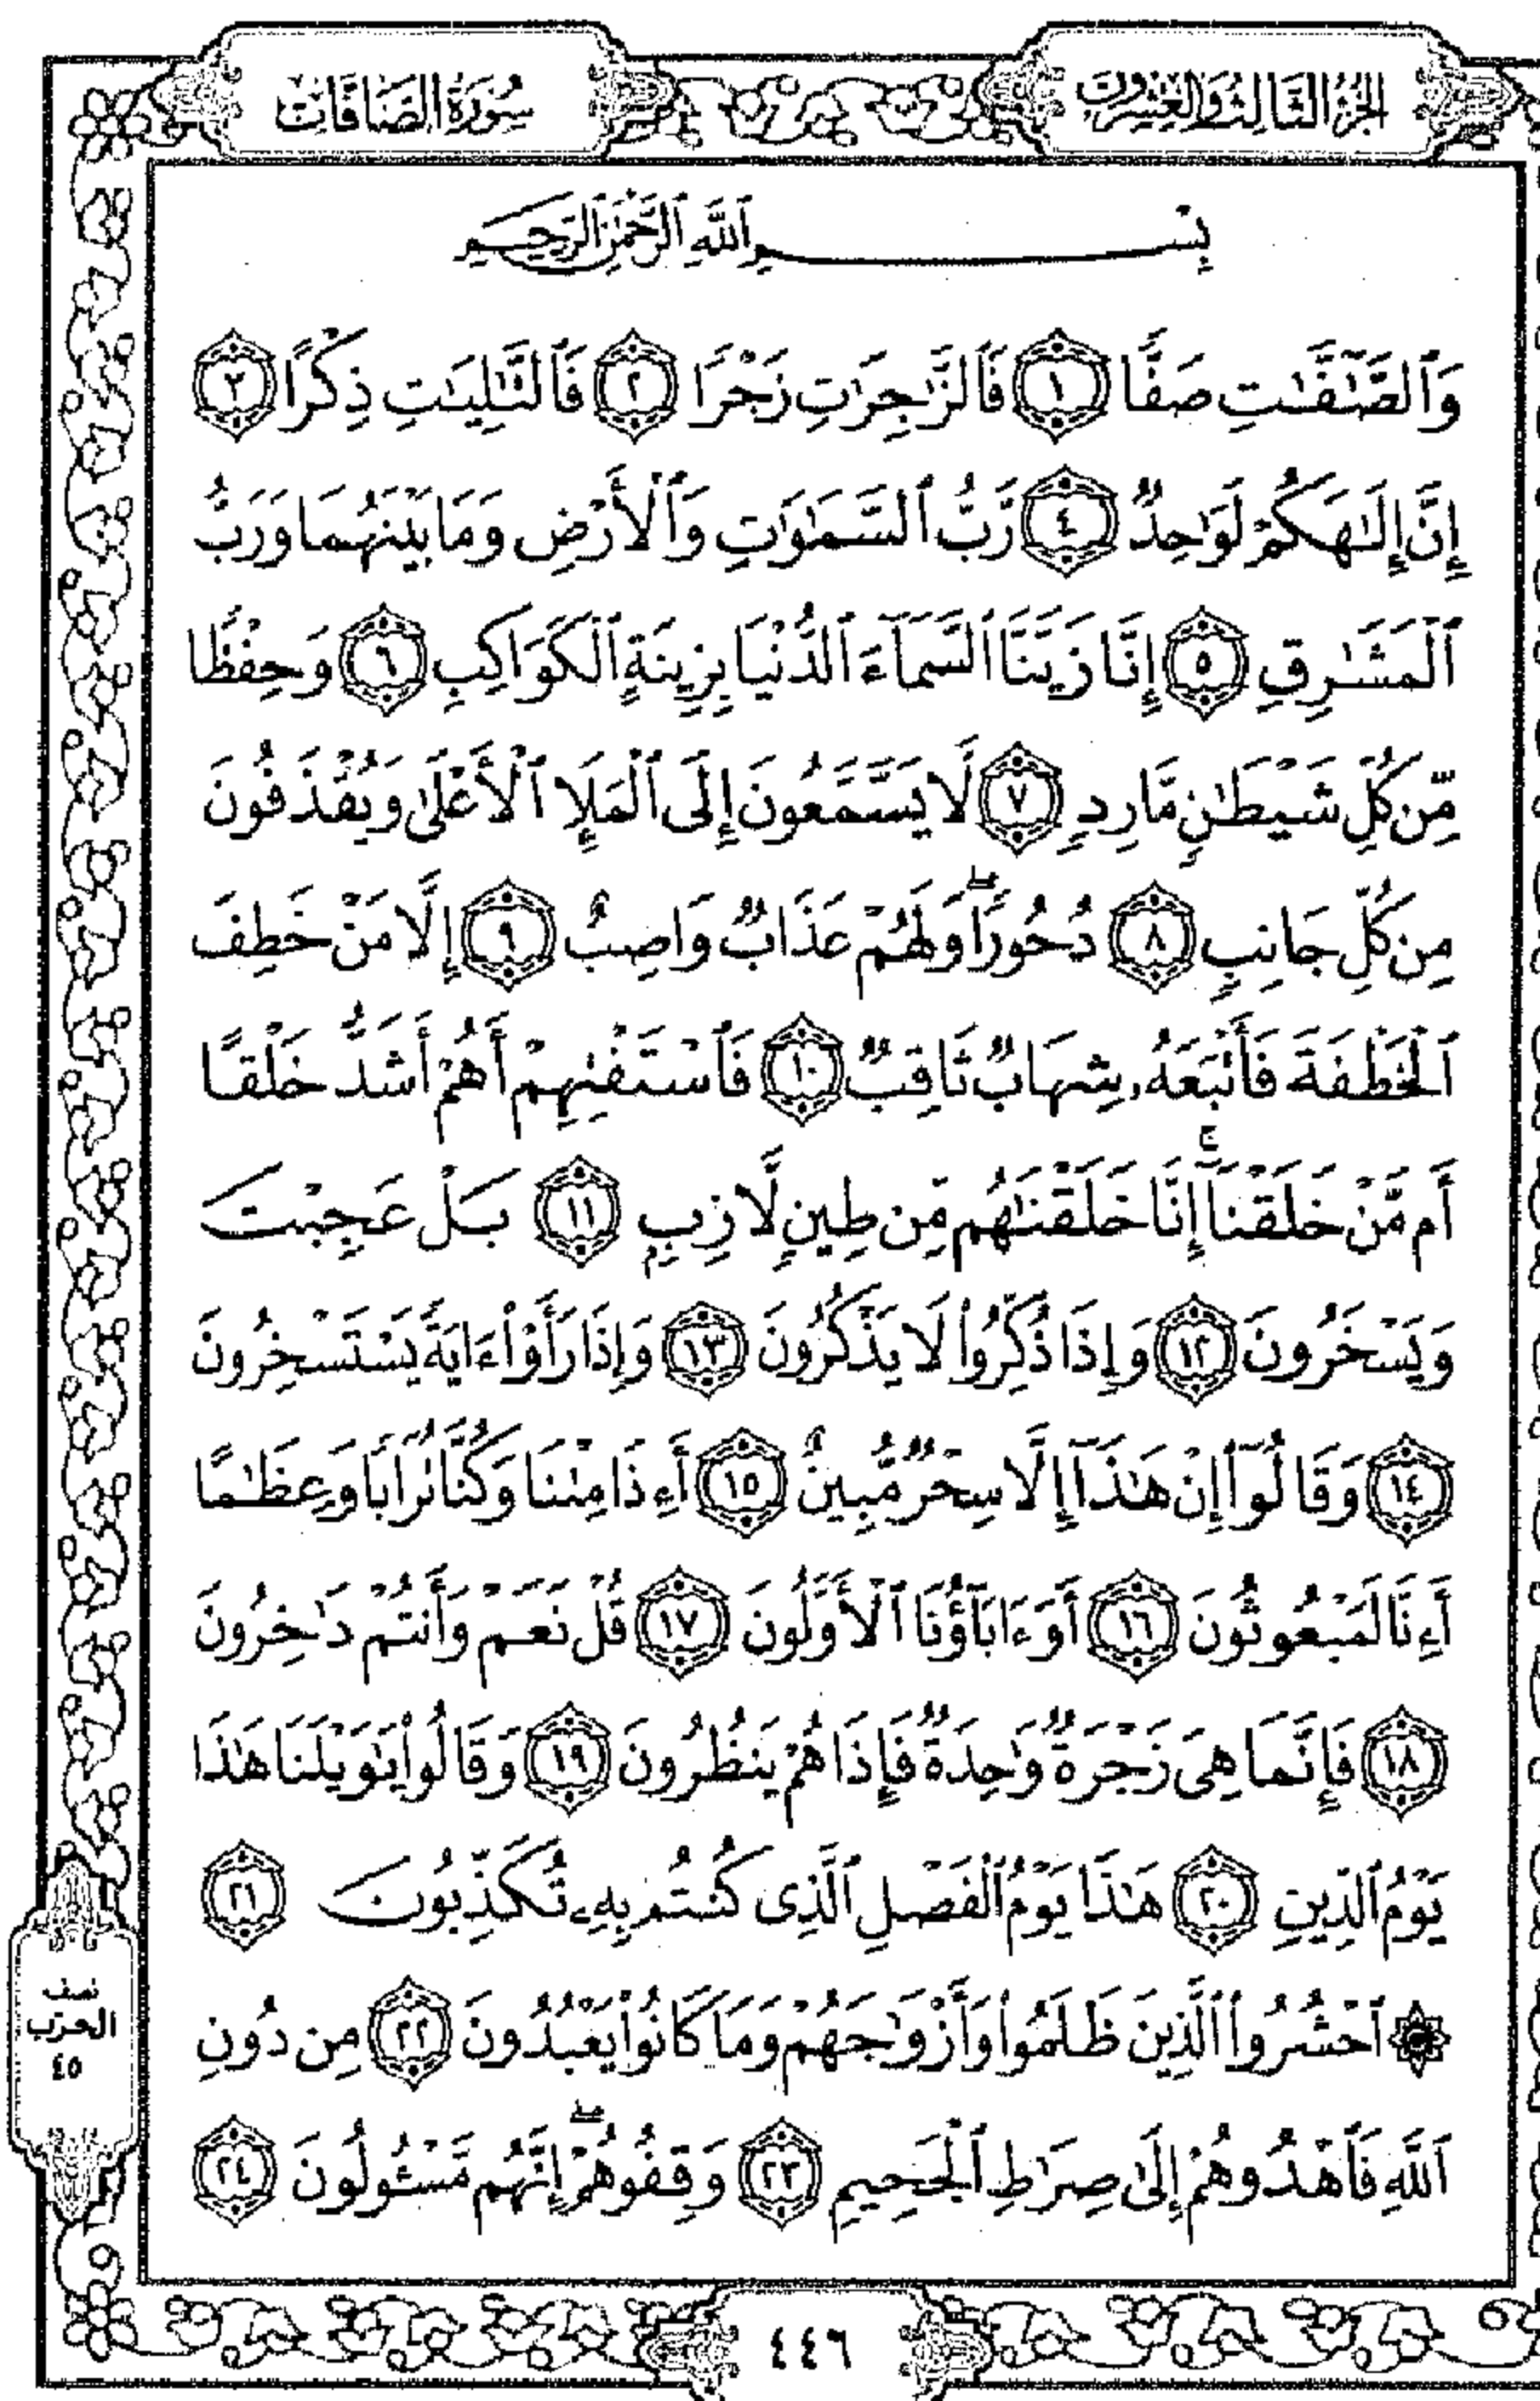 الجزء الثالث والعشرون
سورة الصافات
بِسْمِ ٱللَّهِ ٱلرَّحْمَٰنِ ٱلرَّحِيمِ
وَٱلصَّٰٓفَّٰتِ صَفًّا ١ فَٱلزَّٰجِرَٰتِ زَجْرًا ٢ فَٱلتَّٰلِيَٰتِ ذِكْرًا ٣
إِنَّ إِلَٰهَكُمْ لَوَٰحِدٌ ٤ رَّبُّ ٱلسَّمَٰوَٰتِ وَٱلْأَرْضِ وَمَا بَيْنَهُمَا وَرَبُّ
ٱلْمَشَٰرِقِ ٥ إِنَّا زَيَّنَّا ٱلسَّمَآءَ ٱلدُّنْيَا بِزِينَةٍ ٱلْكَوَاكِبِ ٦ وَحِفْظًا
مِّن كُلِّ شَيْطَٰنٍ مَّارِدٍ ٧ لَّا يَسَّمَّعُونَ إِلَى ٱلْمَلَإِ ٱلْأَعْلَىٰ وَيُقْذَفُونَ
مِن كُلِّ جَانِبٍ ٨ دُحُورًا ۖ وَلَهُمْ عَذَابٌ وَاصِبٌ ٩ إِلَّا مَنْ خَطِفَ
ٱلْخَطْفَةَ فَأَتْبَعَهُۥ شِهَابٌ ثَاقِبٌ ١٠ فَٱسْتَفْتِهِمْ أَهُمْ أَشَدُّ خَلْقًا
أَم مَّنْ خَلَقْنَآ ۚ إِنَّا خَلَقْنَٰهُم مِّن طِينٍ لَّازِبٍ ١١ بَلْ عَجِبْتَ
وَيَسْخَرُونَ ١٢ وَإِذَا ذُكِّرُوا۟ لَا يَذْكُرُونَ ١٣ وَإِذَا رَأَوْا۟ ءَايَةً يَسْتَسْخِرُونَ
١٤ وَقَالُوٓا۟ إِنْ هَٰذَآ إِلَّا سِحْرٌ مُّبِينٌ ١٥ أَءِذَا مِتْنَا وَكُنَّا تُرَابًا وَعِظَٰمًا
أَءِنَّا لَمَبْعُوثُونَ ١٦ أَوَءَابَآؤُنَا ٱلْأَوَّلُونَ ١٧ قُلْ نَعَمْ وَأَنتُمْ دَٰخِرُونَ
١٨ فَإِنَّمَا هِىَ زَجْرَةٌ وَٰحِدَةٌ فَإِذَا هُمْ يَنظُرُونَ ١٩ وَقَالُوا۟ يَٰوَيْلَنَا هَٰذَا
يَوْمُ ٱلدِّينِ ٢٠ هَٰذَا يَوْمُ ٱلْفَصْلِ ٱلَّذِى كُنتُم بِهِۦ تُكَذِّبُونَ ٢١
۞ ٱحْشُرُوا۟ ٱلَّذِينَ ظَلَمُوا۟ وَأَزْوَٰجَهُمْ وَمَا كَانُوا۟ يَعْبُدُونَ ٢٢ مِن دُونِ
ٱللَّهِ فَٱهْدُوهُمْ إِلَىٰ صِرَٰطِ ٱلْجَحِيمِ ٢٣ وَقِفُوهُمْ ۖ إِنَّهُم مَّسْـُٔولُونَ ٢٤
نصف
الحزب
٤٥
٤٤٦